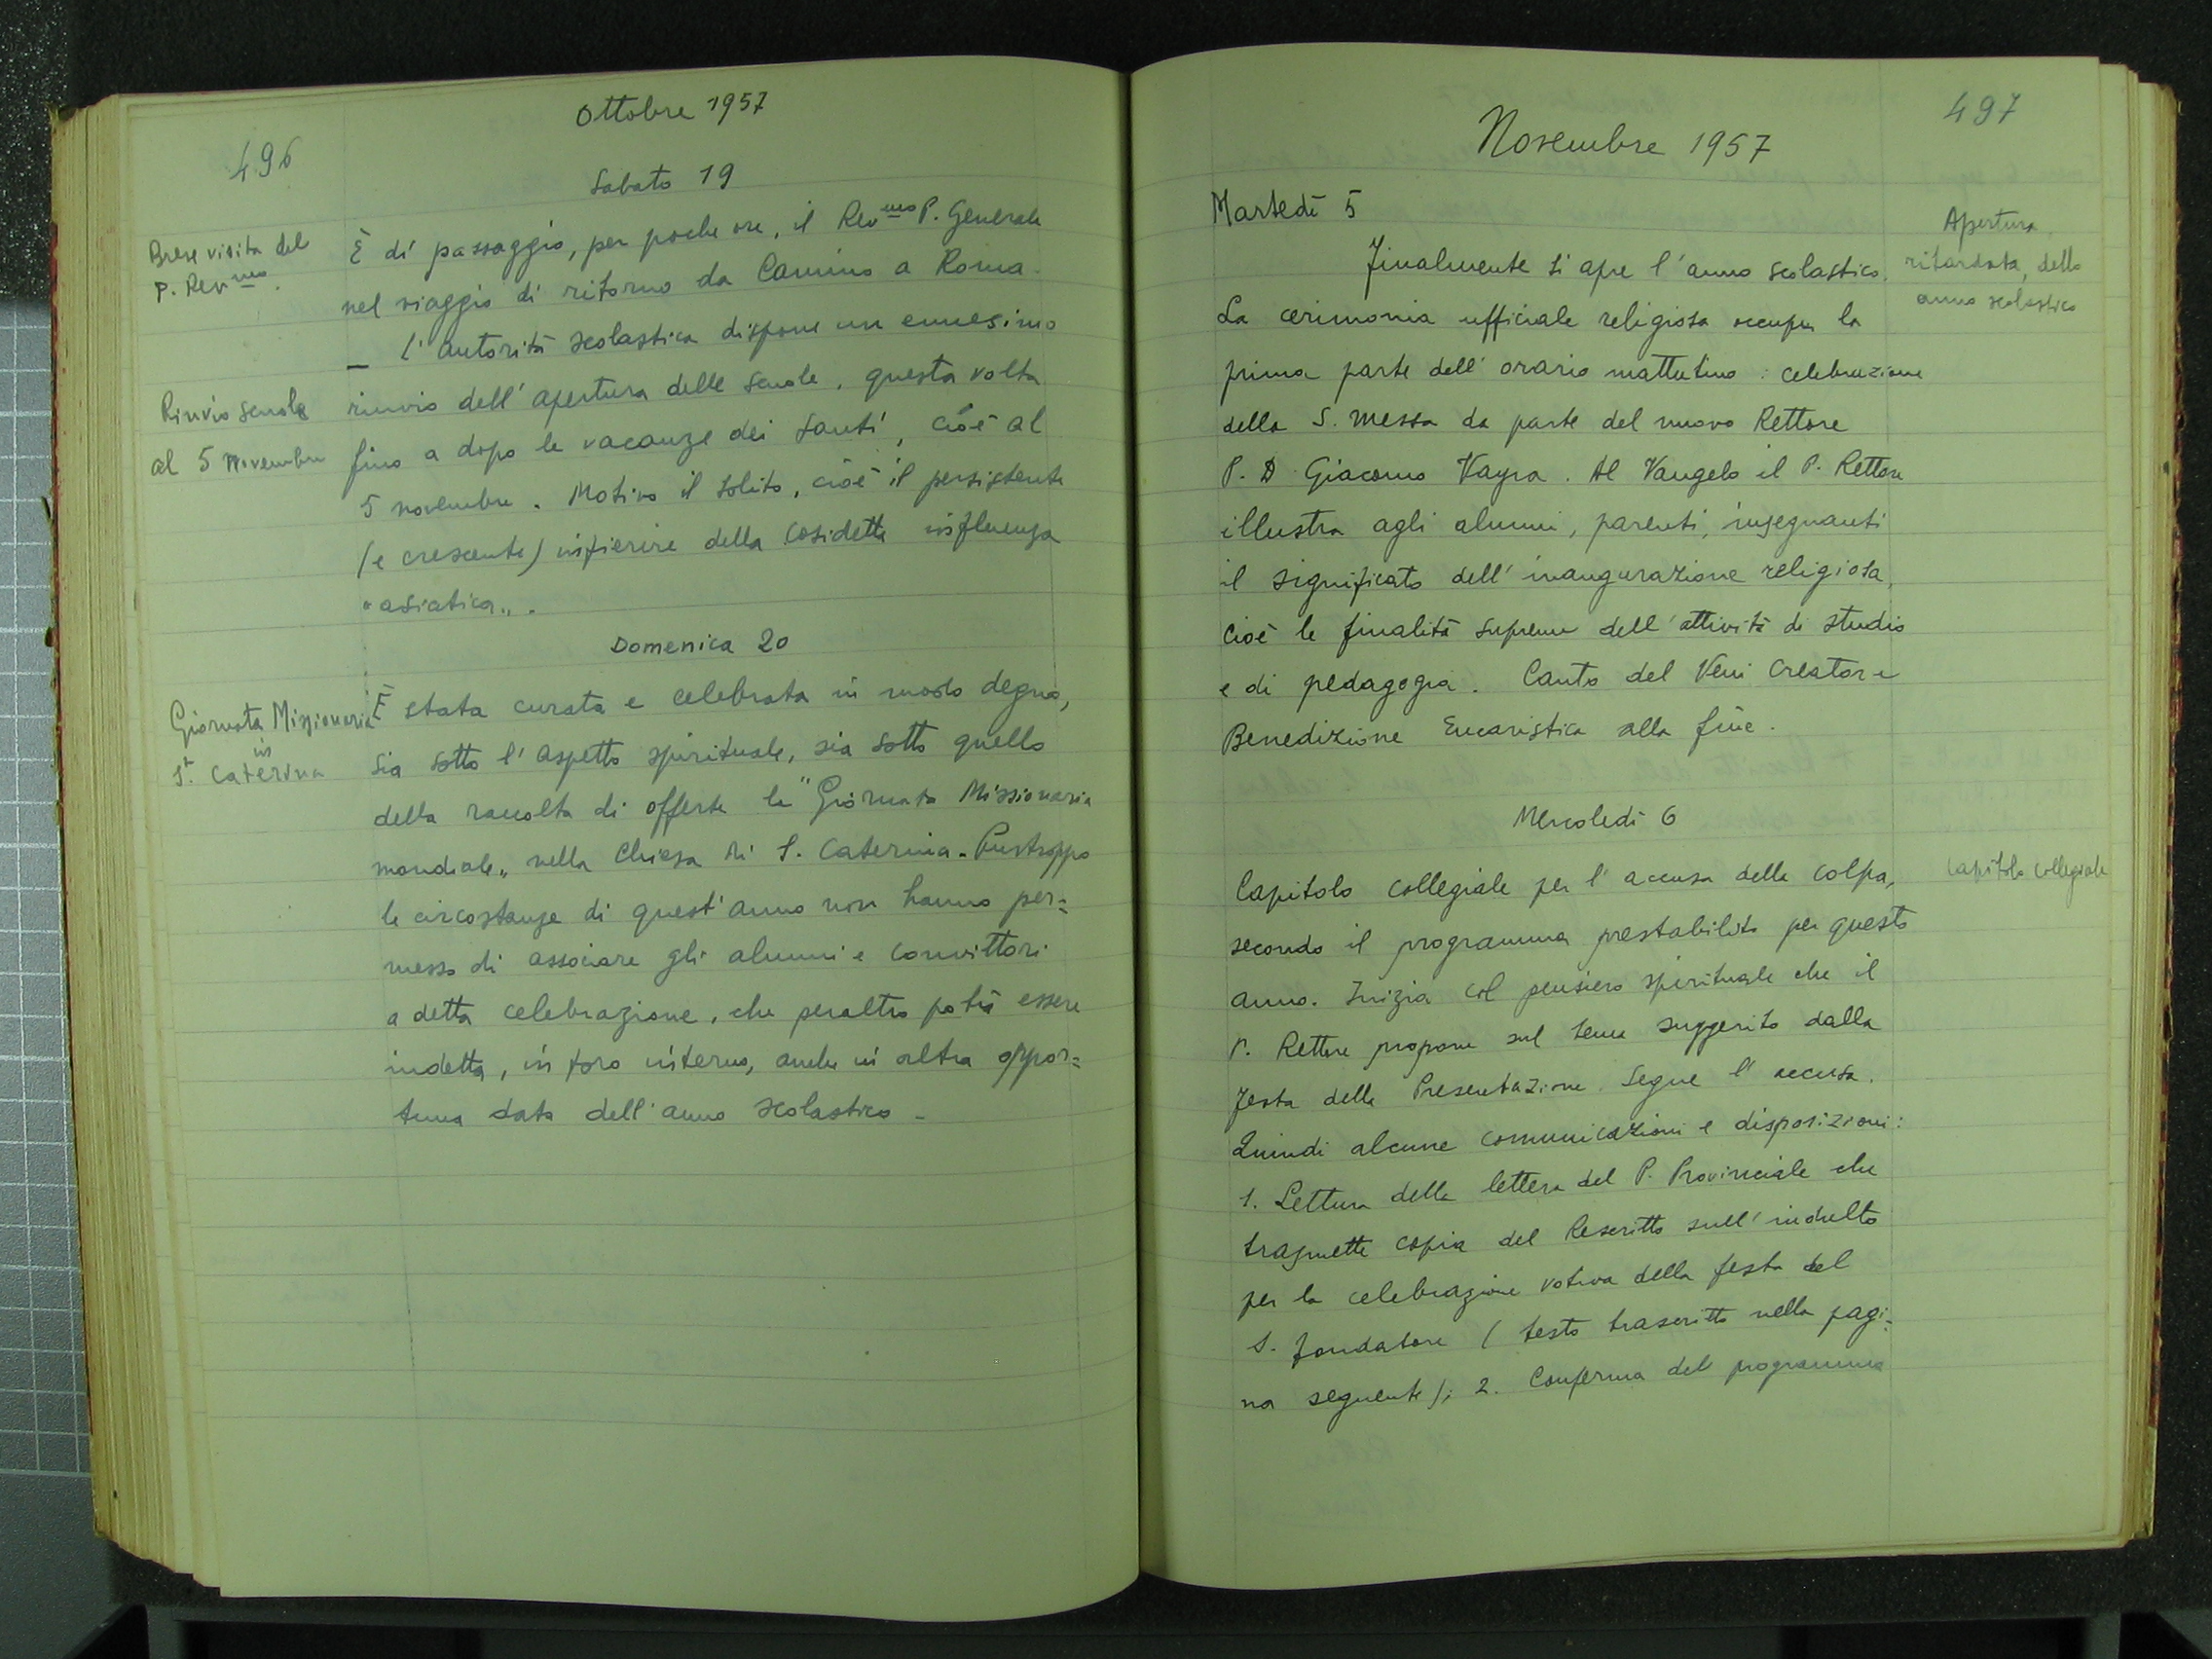 496
Ottobre 1957
Sabato 19
Breve visita del
P. Rev.mo
È di passaggio, per poche ore, il Rev.mo P. Generale
nel viaggio di ritorno da Camino a Roma.
_ L'autorità scolastica dispone un ennesimo
Rinvio scuole
al 5 Novembre
rinvio dell'apertura delle scuole, questa volta
fino a dopo le vacanze dei Santi, cioè al
5 novembre. Motivo il solito, cioè il persistente
(e crescente) infierire della cosidetta influenza
"asiatica".
Domenica 20
Giornata Missionaria
in
S. Caterina
È stata curata e celebrata in modo degno,
sia sotto l'aspetto spirituale, sia sotto quello
della raccolta di offerte la "Giornata Missionaria
mondiale" nella Chiesa di S. Caterina. Purtroppo
le circostanze di quest'anno non hanno per=
messo di associare gli alunni e convittori
a detta celebrazione, che peraltro potrà essere
indetta, in foro interno, anche in altra oppor=
tuna data dell'anno scolastico -
497
Novembre 1957
Martedì 5
Apertura
ritardata, dello
anno scolastico
Finalmente si apre l'anno scolastico.
La cerimonia ufficiale religiosa occupa la
prima parte dell'orario mattutino : celebrazione
della S. Messa da parte del nuovo Rettore
P. D. Giacomo Vayra. Al Vangelo il P. Rettore
illustra agli alunni, parenti, insegnanti
il significato dell'inaugurazione religiosa,
cioè le finalità supreme dell'attività di studio
e di pedagogia. Canto del Veni Creator e
Benedizione Eucaristica alla fine.
Mercoledì 6
Capitolo collegiale
Capitolo collegiale per l'accusa delle colpa,
secondo il programma prestabilito per questo
anno. Inizia col pensiero spirituale che il
P. Rettore propone sul tema suggerito dalla
festa della Presentazione. Segue l'accusa.
Quindi alcune comunicazioni e disposizioni:
1. Lettura della lettera del P. Provinciale che
trasmette copia del Rescritto sull'indulto
per la celebrazione votiva della festa del
S. Fondatore (testo trascritto nella pagi=
na seguente); 2. Conferma del programma